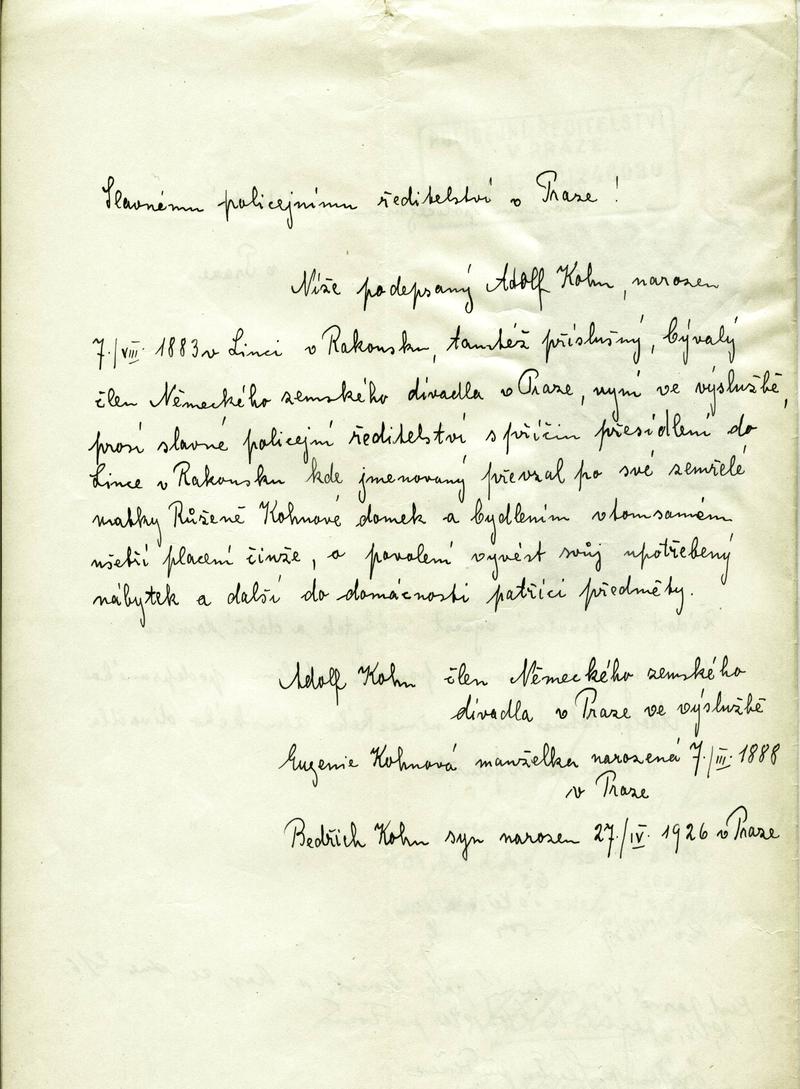 Slavnému policejnímu ředitelství v Praze!
Níže podepsaný Adolf Kohn, narozen
7./VIII. 1883 v Linci v Rakousku, tamtéž příslušný, bývalý
člen Německého zemského divadla v Praze, nyní ve výslužbě,
prosí slavné policejní ředitelství s příčin přesídlení do
Lince v Rakousku kde jmenovaný převzal po své zemřelé
matky Růženě Kohnové domek a bydlením vtomsamém
ušetří placení činže, o povolení vyvést svůj upotřebený
nábytek a další do domácnosti patřící předměty.
Adolf Kohn člen Německého zemského
divadla v Praze ve výslužbě
Eugenie Kohnová manželka narozená 7./III. 1888
v Praze
Bedřich Kohn syn narozen 27./IV. 1926 v Praze